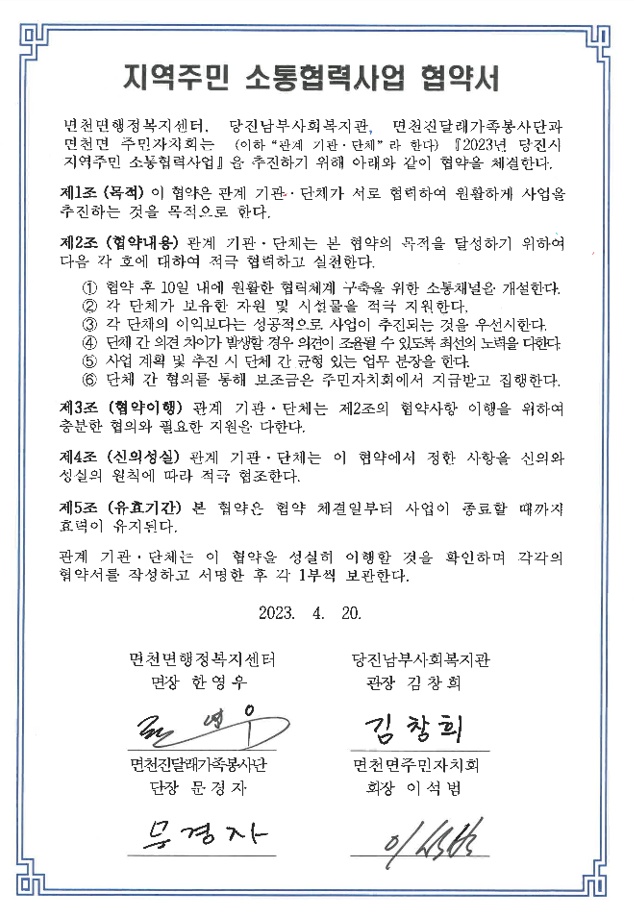 지역주민 소통협력사업 협약서
면천면행정복지센터, 당진남부사회복지관, 면천진달래가족봉사단과
면천면 주민자치회는 (이하 “관계 기관·단체”라 한다) 『2023년 당진시
지역주민 소통협력사업』을 추진하기 위해 아래와 같이 협약을 체결한다.
제1조 (목적) 이 협약은 관계 기관·단체가 서로 협력하여 원활하게 사업을
추진하는 것을 목적으로 한다.
제2조 (협약내용) 관계 기관·단체는 본 협약의 목적을 달성하기 위하여
다음 각 호에 대하여 적극 협력하고 실천한다.
① 협약 후 10일 내에 원활한 협력체계 구축을 위한 소통채널을 개설한다.
② 각 단체가 보유한 자원 및 시설물을 적극 지원한다.
③ 각 단체의 이익보다는 성공적으로 사업이 추진되는 것을 우선시한다.
④ 단체 간 의견 차이가 발생할 경우 의견이 조율될 수 있도록 최선의 노력을 다한다.
⑤ 사업 계획 및 추진 시 단체 간 균형 있는 업무 분장을 한다.
⑥ 단체 간 협의를 통해 보조금은 주민자치회에서 지급받고 집행한다.
제3조 (협약이행) 관계 기관·단체는 제2조의 협약사항 이행을 위하여
충분한 협의와 필요한 지원을 다한다.
제4조 (신의성실) 관계 기관·단체는 이 협약에서 정한 사항을 신의와
성실의 원칙에 따라 적극 협조한다.
제5조 (유효기간) 본 협약은 협약 체결일부터 사업이 종료할 때까지
효력이 유지된다.
관계 기관·단체는 이 협약을 성실히 이행할 것을 확인하며 각각의
협약서를 작성하고 서명한 후 각 1부씩 보관한다.
2023. 4. 20.
면천면행정복지센터 당진남부사회복지관
면장 한영우 관장 김창희
한영우 김창희
면천진달래가족봉사단 면천면주민자치회
단장 문경자 회장 이석범
문경자 이석범